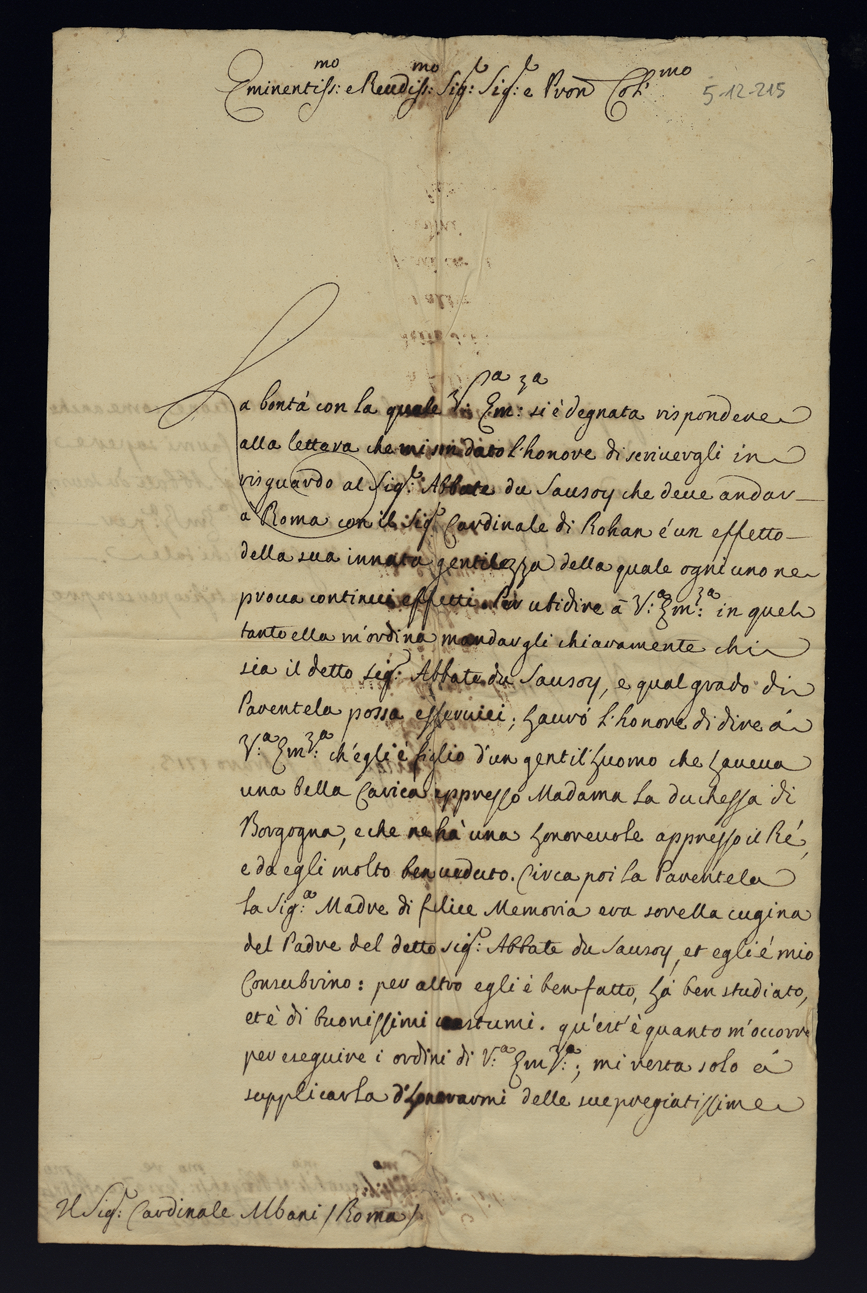 Eminentiss:mo e Reudiss:mo Sig:r Sig:r e Pron Col:mo
5-12-215
La bontà con la quale V:ra Em:za si è degnata rispondere
alla lettara che mi son dato l'honore di scriuergli in
risguardo al Sig:r Abbate du Sausoy che deue andar
à Roma con il Sig:r Cardinale di Rohan é un effetto
della sua innata gentilezza della quale ogni uno ne
proua continui effetti. Per ubidire à V:ra Em:za in quel
tanto ella m'ordina mandargli chiaramente chi
sia il detto sig:r Abbate du Sausoy, e qual grado di
Parentela possa esseruici; hauró l'honore di dire á
V:ra Em:za ch'egli é figlio d'un gentil'huomo che haueua
una bella Carica appresso Madama la duchessa di
Borgogna, e che ne hà una honoreuole appresso il Ré,
e da egli molto ben ueduto. Circa poi la Parentela
la Sig:ra Madre di felice Memoria era sorella cugina
del Padre del detto sig:r Abbate du Sausoy, et egli é mio
Consubrino: per altro egli é ben fatto, há ben studiato,
et è di buonissimi costumi. qu'est'è quanto m'occorre
per eseguire i ordini di V:ra Em:za; mi resta solo á
supplicarla d'honorarmi delle sue pregiatissime
Il Sig:r Cardinale Albani / Roma /